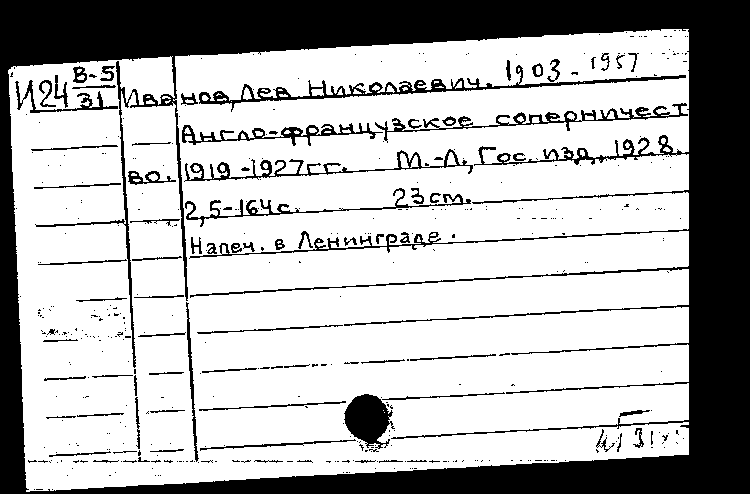 И24 В-5
31
Иванов, Лев Николаевич. 1903 - 1957
Англо-французское соперничест
во. 1919-1927гг. М.-Л., Гос. изд., 1928.
2,5-164с. 23cm.
Напеч. в Ленинграде.